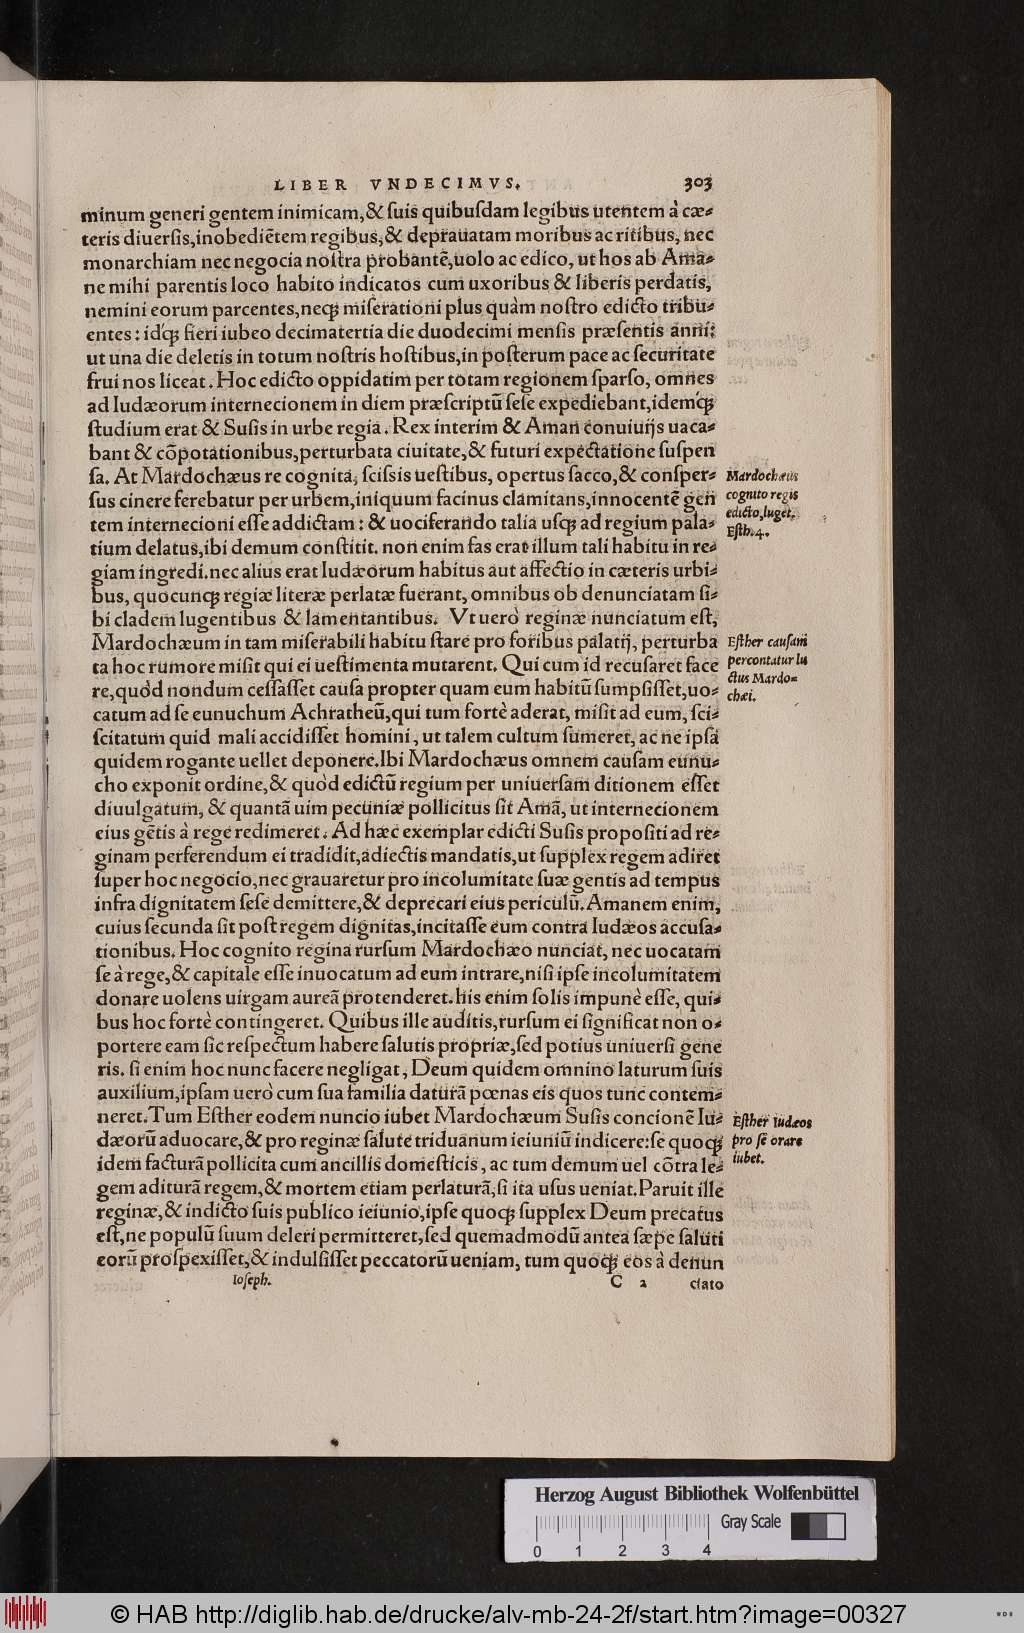 LIBER VNDECIMVS. 303
minum generi gentem inimicam, & ſuis quibuſdam legibus utentem à cæ-
teris diuerſis, inobediẽtem regibus, & deprauatam moribus ac ritibus, nec
monarchiam nec negocia noſtra probantẽ, uolo ac edico, ut hos ab Ama-
ne mihi parentis loco habito indicatos cum uxoribus & liberis perdatis,
nemini eorum parcentes, neqꝫ miſerationi plus quàm noſtro edicto tribu-
entes: idꝗꝫ fieri iubeo decimatertia die duodecimi menſis præſentis anni:
ut una die deletis in totum noſtris hoſtibus, in poſterum pace ac ſecuritate
frui nos liceat. Hoc edicto oppidatim per totam regionem ſparſo, omnes
ad Iudæorum internecionem in diem præſcriptũ ſeſe expediebant, idemqꝫ
ſtudium erat & Suſis in urbe regia. Rex interim & Aman conuiuijs uaca-
bant & cõpotationibus, perturbata ciuitate, & futuri expectatione ſuſpen
ſa. At Mardochæus re cognita, ſciſsis ueſtibus, opertus ſacco, & conſper-
ſus cinere ferebatur per urbem, iniquum facinus clamitans, innocentẽ gen
tem internecioni eſſe addictam: & uociferando talia uſqꝫ ad regium pala-
tium delatus, ibi demum conſtitit. non enim fas erat illum tali habitu in re-
giam ingredi. nec alius erat Iudæorum habitus aut affectio in cæteris urbi-
bus, quocunqꝫ regiæ literæ perlatæ fuerant, omnibus ob denunciatam ſi-
bi cladem lugentibus & lamentantibus. Vt uerò reginæ nunciatum eſt,
Mardochæum in tam miſerabili habitu ſtare pro foribus palatij, perturba
ta hoc rumore miſit qui ei ueſtimenta mutarent. Qui cum id recuſaret face
re, quòd nondum ceſſaſſet cauſa propter quam eum habitũ ſumpſiſſet, uo-
catum ad ſe eunuchum Achratheũ, qui tum fortè aderat, miſit ad eum, ſci-
ſcitatum quid mali accidiſſet homini, ut talem cultum ſumeret, ac ne ipſa
quidem rogante uellet deponere. Ibi Mardochæus omnem cauſam eunu-
cho exponit ordine, & quòd edictũ regium per uniuerſam ditionem eſſet
diuulgatum, & quantã uim pecuniæ pollicitus ſit Amã, ut internecionem
eius gẽtis à rege redimeret. Ad hæc exemplar edicti Suſis propoſiti ad re-
ginam perferendum ei tradidit, adiectis mandatis, ut ſupplex regem adiret
ſuper hoc negocio, nec grauaretur pro incolumitate ſuæ gentis ad tempus
infra dignitatem ſeſe demittere, & deprecari eius periculũ. Amanem enim,
cuius ſecunda ſit poſt regem dignitas, incitaſſe eum contra Iudæos accuſa-
tionibus. Hoc cognito regina rurſum Mardochæo nunciat, nec uocatam
ſe à rege, & capitale eſſe inuocatum ad eum intrare, niſi ipſe incolumitatem
donare uolens uirgam aureã protenderet. his enim ſolis impunè eſſe, qui-
bus hoc fortè contingeret. Quibus ille auditis, rurſum ei ſignificat non o-
portere eam ſic reſpectum habere ſalutis propriæ, ſed potius uniuerſi gene
ris. ſi enim hoc nunc facere negligat, Deum quidem omnino laturum ſuis
auxilium, ipſam uerò cum ſua familia daturã pœnas eis quos tunc contem-
neret. Tum Eſther eodem nuncio iubet Mardochæum Suſis concionẽ Iu-
dæorũ aduocare, & pro reginæ ſalute triduanum ieiuniũ indicere: ſe quoqꝫ
idem facturã pollicita cum ancillis domeſticis, ac tum demum uel cõtra le-
gem aditurã regem, & mortem etiam perlaturã, ſi ita uſus ueniat. Paruit ille
reginæ, & indicto ſuis publico ieiunio, ipſe quoqꝫ ſupplex Deum precatus
eſt, ne populũ ſuum deleri permitteret, ſed quemadmodũ antea ſæpe ſaluti
eorũ proſpexiſſet, & indulſiſſet peccatorũ ueniam, tum quoqꝫ eos à denun
Ioſeph. C 2 ciato
Mardochæus
cognito regis
edicto, luget.
Eſth. 4.
Eſther cauſam
percontatur lu
ctus Mardo-
chæi.
Eſther Iudæos
pro ſe orare
iubet.
Herzog August Bibliothek Wolfenbüttel
Gray Scale
0 1 2 3 4
© HAB http://diglib.hab.de/drucke/alv-mb-24-2f/start.htm?image=00327